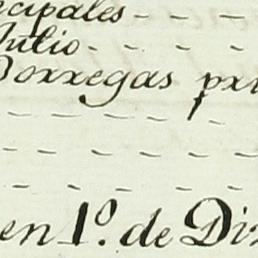 cipales - - -
Julio - - - -
Borregas pri
- - - - -
- - - - -
- - - - -
en 1.º de Di